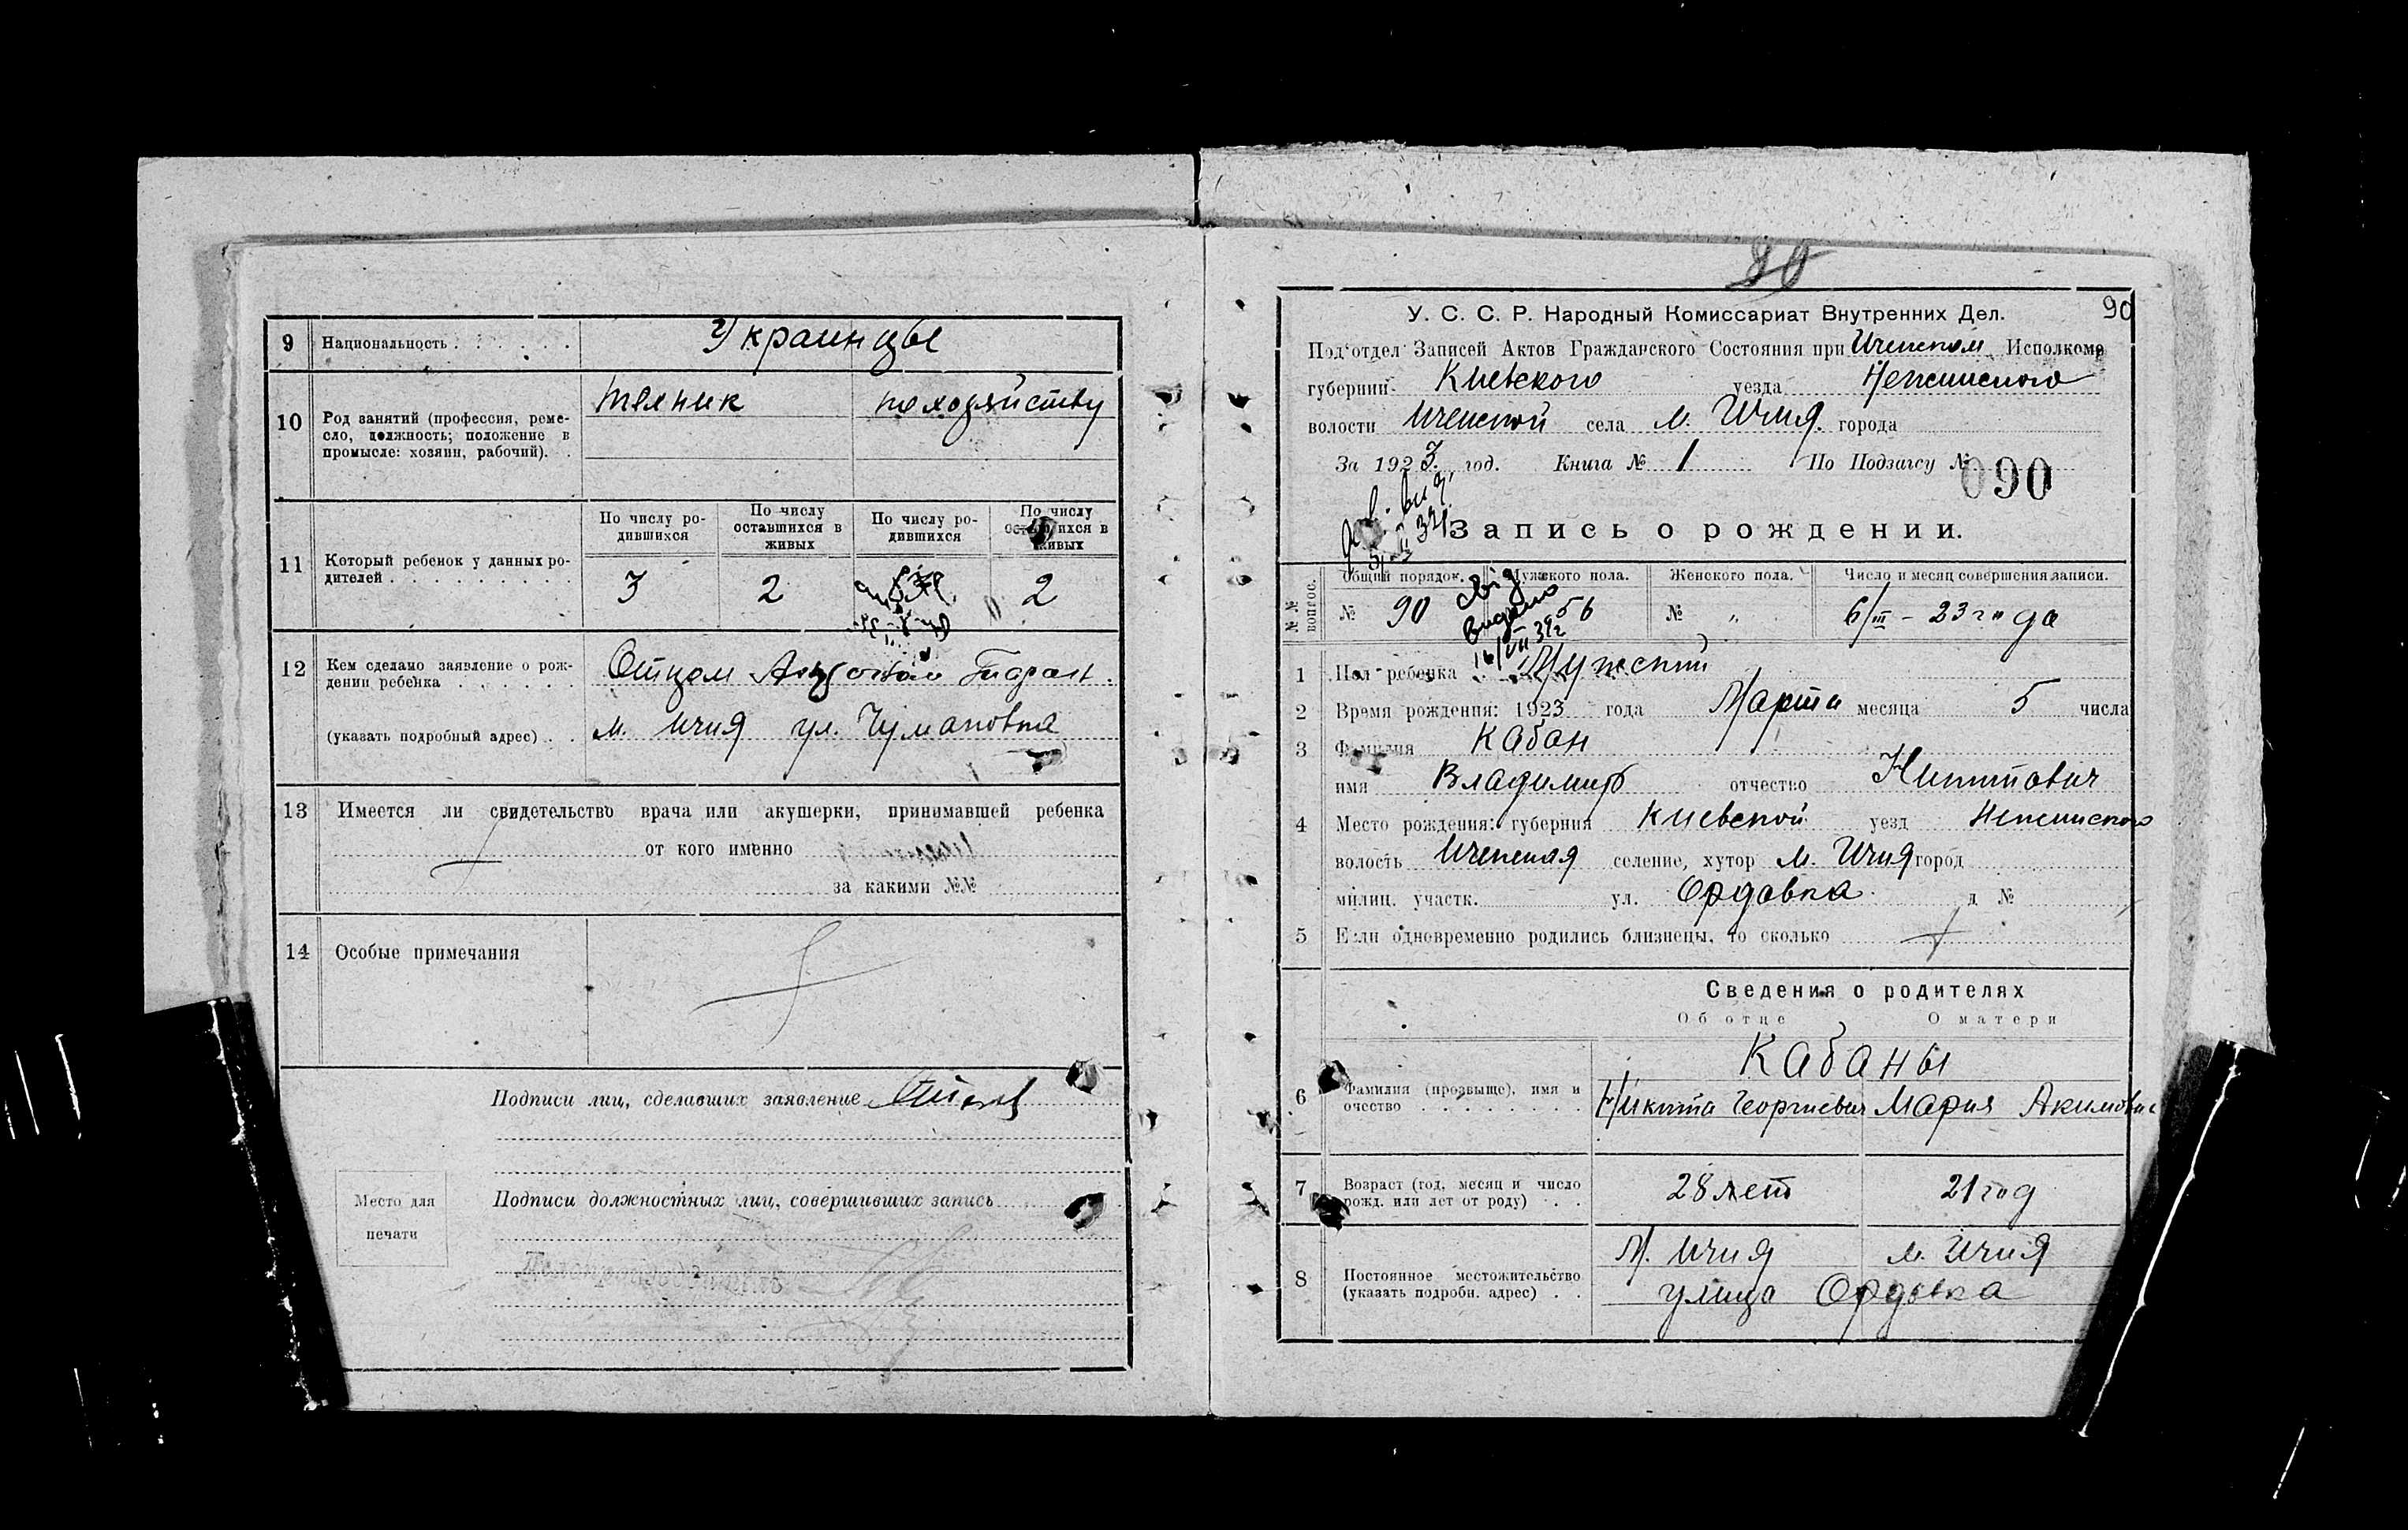 9 Национальность Украинцы
10 Род занятий (профессия, реме-
сло, должность; положение в
промысле: хозяин, рабочий).
хозяйству
По числу ро-
дившихся
По числу
оставшихся в
живых
По числу ро-
дившихся
По числу
оставшихся в
живых
11 Который ребенок у данных ро-
дителей
3 2 2
12 Кем сделано заявление о рож-
дении ребенка Отцом
(указать подробный адрес) м. Ичня ул. Чумаковка
13 Имеется ли свидетельство врача или акушерки, принимавшей ребенка
от кого именно
за какими №№
14 Особые примечания
Подписи лиц, сделавших заявление
Место для
печати
Подписи должностных лиц, совершивших запись
90
У. С. С. Р. Народный Комиссариат Внутренних Дел.
Под'отдел Записей Актов Гражданского Состояния при Иченском Исполкоме
губернии Киевского уезда Неженского
волости Иченской села м. Ичня города
За 1923 год. Книга № 1 По Подзагсу № 090
Запись о рождении.
№№ вопрос.
Общий порядок. Мужского пола. Женского пола. Число и месяц совершения записи.
№ 90 56 № „ 6/III – 23 года
від
видано
16/VII 39г
1 Пол ребенка Мужский
2 Время рождения: 1923 года Марта месяца 5 числа
3 Фамилия Кабан
имя Владимир отчество Никитович
4 Место рождения: губерния Киевской уезд Неженского
волость Иченская селение, хутор м. Ичня город
милиц. участк. ул. Ордовка д №
5 Если одновременно родились близнецы, то сколько
Сведения о родителях
Об отце О матери
Кабаны
6 Фамилия (прозвыще), имя и
очество
Никита Георгиевич Мария Акимовна
7 Возраст (год, месяц и число
рожд. или лет от роду)
28 лет 21 год
8 Постоянное местожительство
(указать подробн. адрес)
М. Ичня м. Ичня
улица Ордовка